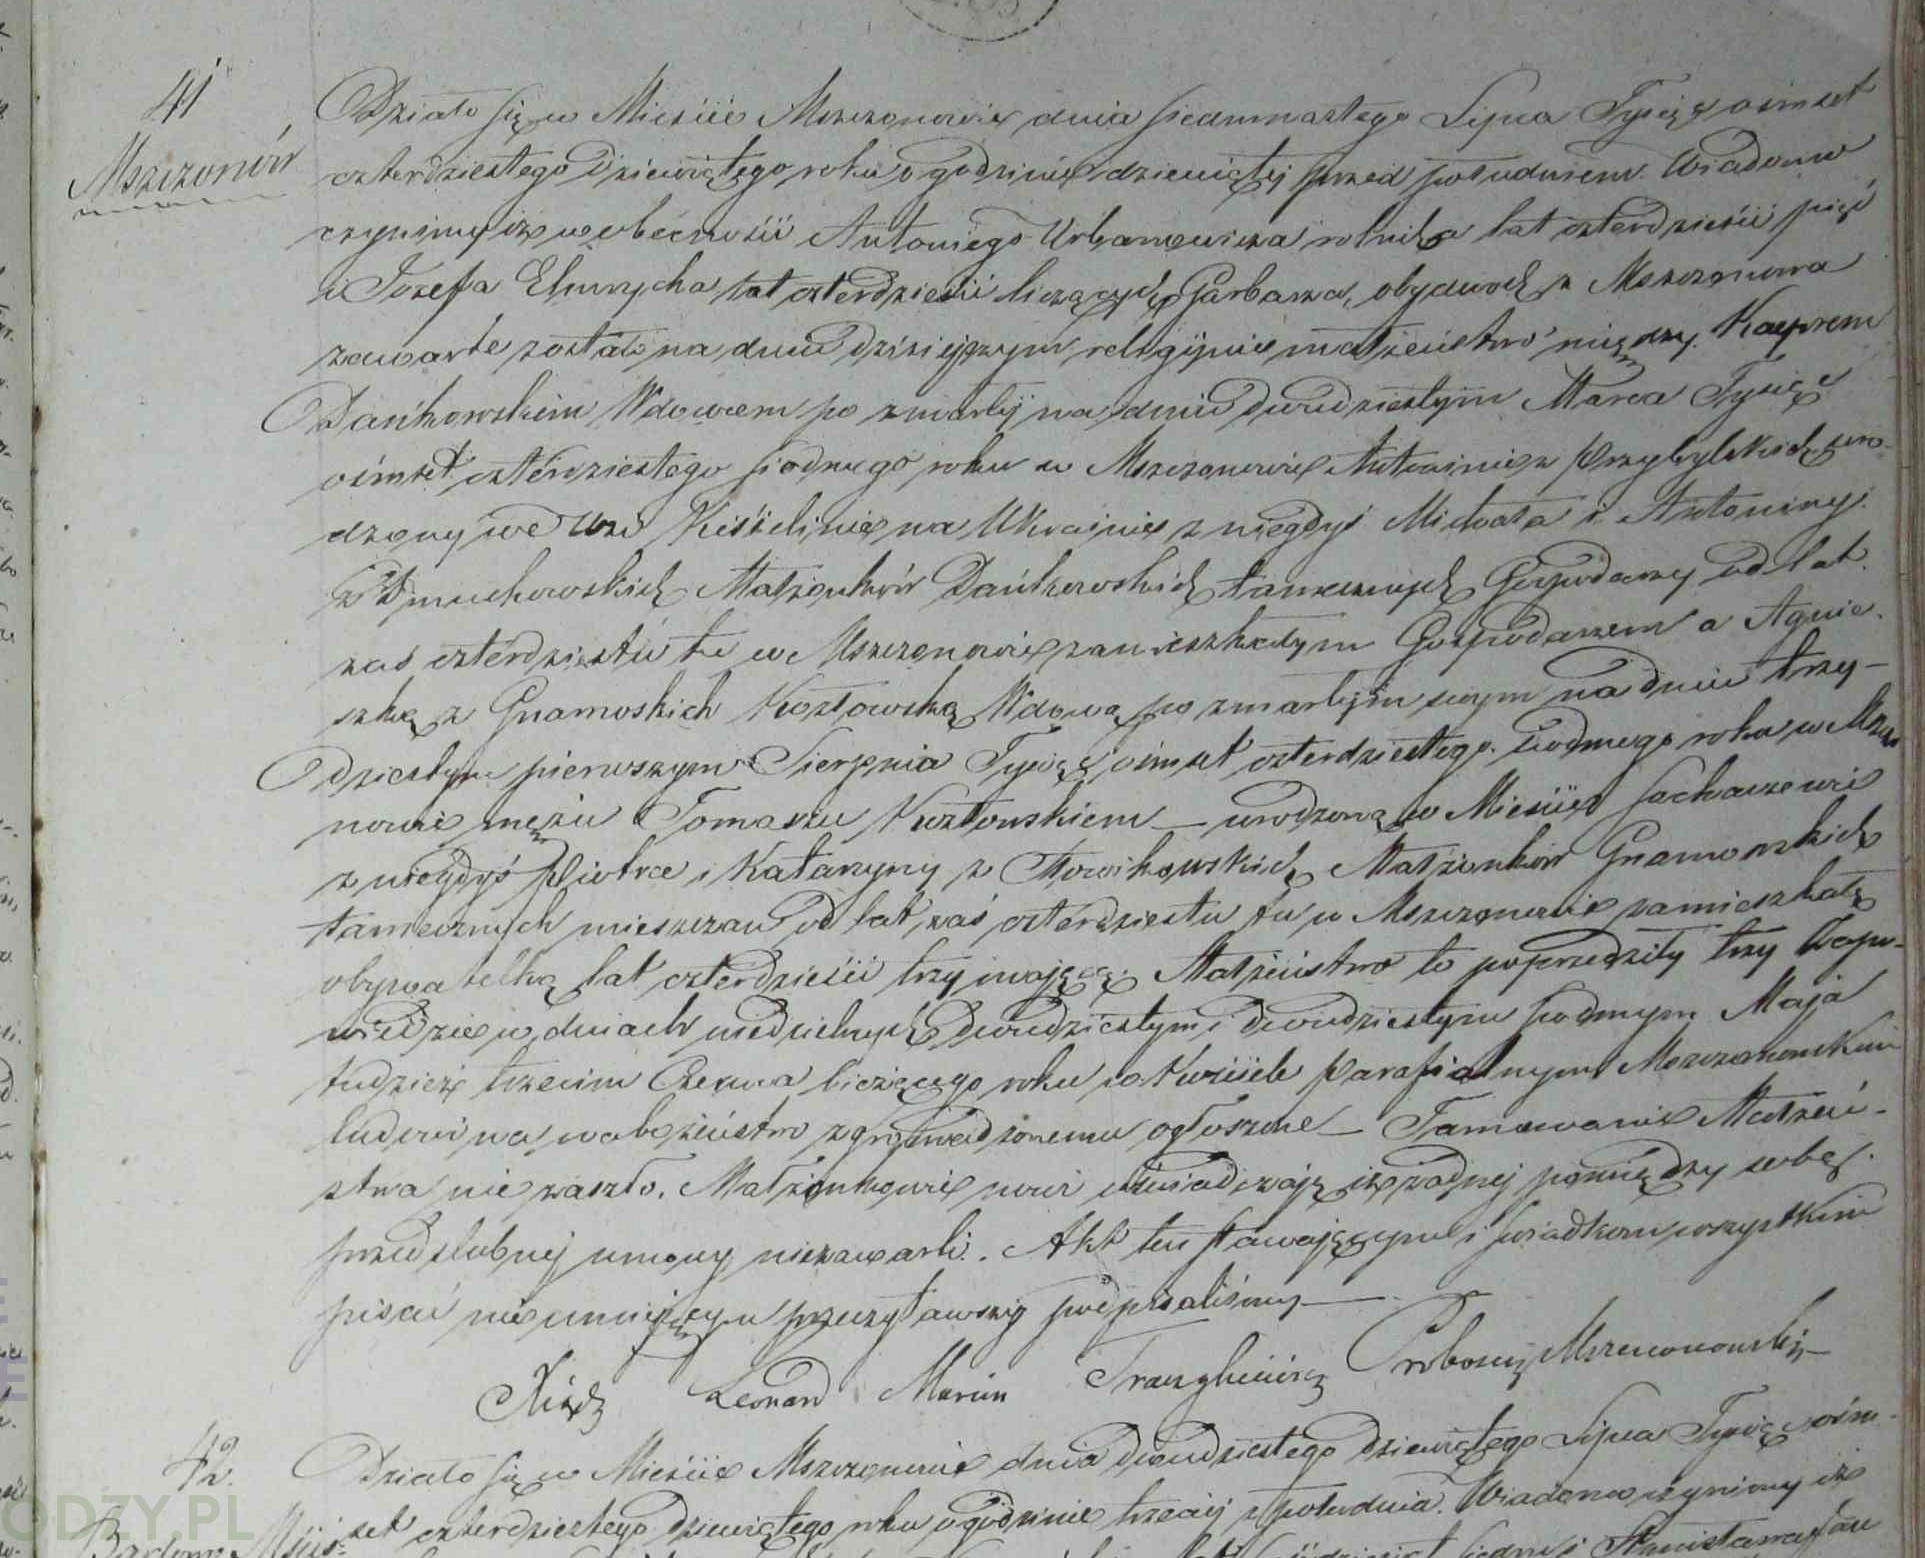 41
Mszczonów
Działo się w Mieście Mszczonowie dnia siedmnastego Lipca Tysiąc ośmset
czterdziestego dziewiątego roku o godzinie dziewiątej przed południem. Wiadomo
czynimy iż w obecności Antoniego Urbanowicza rolnika lat czterdzieści pięć
i Józefa lat czterdzieści liczących Garbarza, obydwóch z Mszczonowa
zawarte zostało na dniu dzisiejszym religijnie małżeństwo między Kacprem
Dańkowskim Wdowcem po zmarłej na dniu dwudziestym Marca Tysiąc
ośmset czterdziestego siódmego roku w Mszczonowie Antoninie z Przybylskich uro-
dzony we Wsi Kisielinie na Ukrainie z niegdyś Michała i Antoniny
z Dmuchowskich Małżonków Dańkowskich tamecznych Gospodarzy od lat
zaś czterdziestu tu w Mszczonowie zamieszkałym Gospodarzem a Agnie-
szką z Gnamoskich Kozłowską Wdową po zmarłym swym na dniu trzy-
dziestym pierwszym Sierpnia Tysiąc ośmset czterdziestego siódmego roku w Mszczo
nowie mężu Tomaszu Kozłowskiem — urodzoną w Mieście Sochaczewie
z niegdyś Piotra i Katarzyny z Małżonków
tamecznych mieszczan od lat zaś czterdziestu tu w Mszczonowie zamieszkałą
obywatelką lat czterdzieści trzy mającą. Małżeństwo to poprzedziły trzy Zapo-
wiedzie w dniach niedzielnych dwudziestym i dwudziestym siódmym Maja
tudzież trzecim Czerwca bieżącego roku w Kościele Parafialnym Mszczonowskim
ludowi na nabożeństwo zgromadzonemu ogłoszone — Tamowanie Małżeń-
stwa nie zaszło. Małżonkowie nowi oświadczają iż żadnej pomiędzy sobą
przedślubnej umowy niezawarli. Akt ten stawającym i świadkom wszystkim
pisać nieumiejącym przeczytawszy podpisaliśmy —
Xiądz Leonard Marcin Proboszcz Mszczonowski
42.
Działo się w Mieście Mszczonowie dnia dwudziestego dziewiątego Lipca Tysiąc ośm-
set czterdziestego dziewiątego roku o godzinie trzeciej z południa. Wiadomo czynimy iż
siedm i Stanisława
ODZY.PL